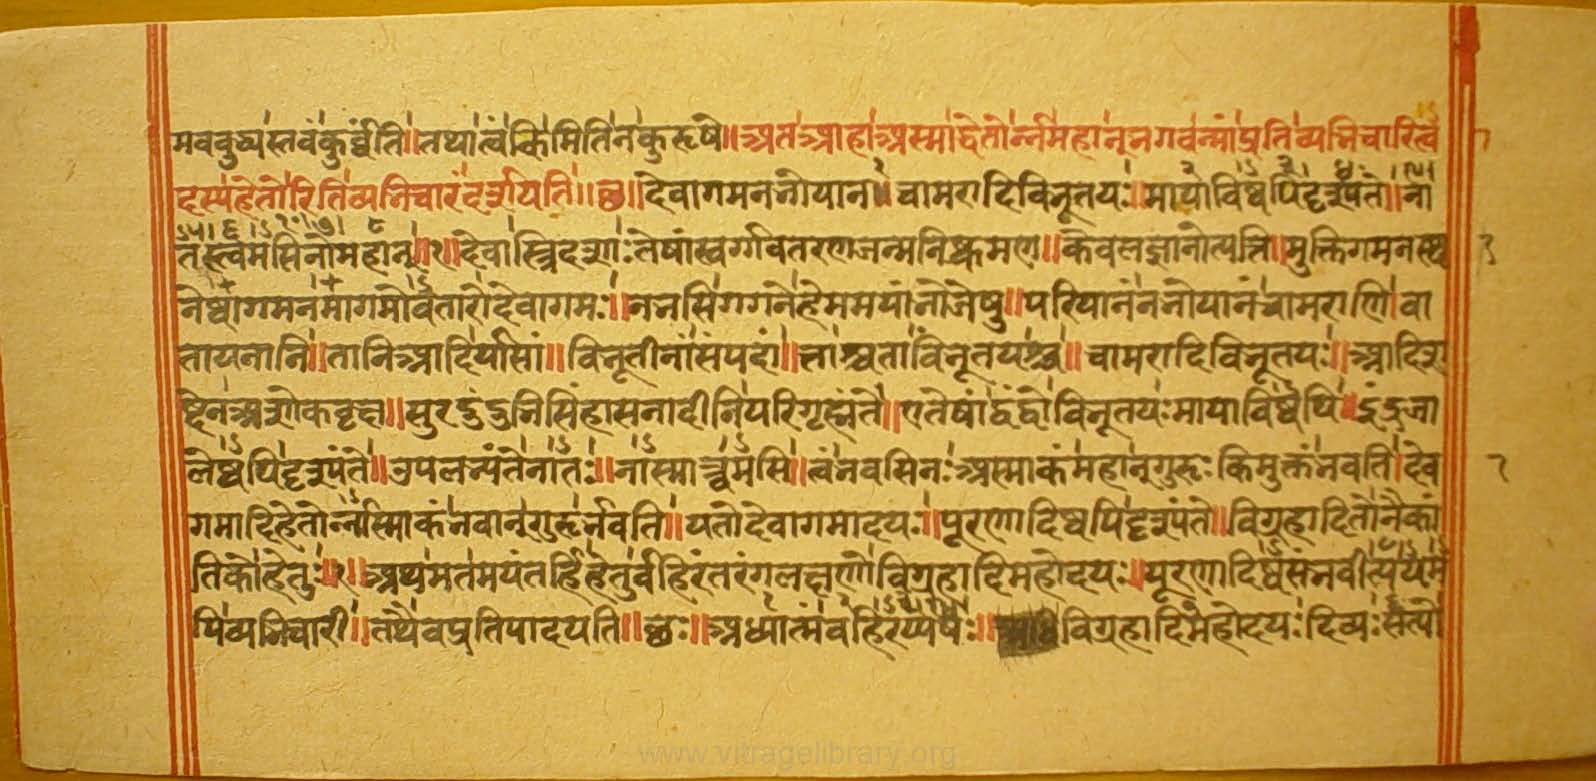 मवबुद्ध्यस्तवंकुर्व्वंति॥तथात्वंकिमितिनकुरुषे॥अतआहाअस्माद्धेतोर्न्नमहान्नगवन्मांप्रतिव्यभिचारित्वे
दस्यहेतोरितिव्यभिचारंदर्शयति॥छ॥देवागमनभोयान॥चामरादिविभूतयः॥मायाविष्वपिदृश्यंते॥ना
तस्त्वमसिनोमहान्॥१॥देवास्त्रिदशाःतेषांस्वर्ग्गावतरणजन्मनिष्क्रमण॥केवलज्ञानोत्पत्ति॥मुक्तिगमनस्था
नेष्वागमनमागमोवतारोदेवागमः॥नभसिगगनेहेममयांभोजेषु॥परियानंनभोयानंचामराणिवा
तायनानि॥तानिआदिर्यासां॥विभूतीनांसंपदां॥ताश्चताविभूतयश्च॥चामरादिविभूतयः॥आदिश
ब्देनअशोकवृक्ष॥सुरदुंदुभिसिंहासनादीनिपरिगृह्यंते॥एतेषांद्वंद्वोविभूतयःमायाविष्वपि॥इंद्रजा
लेष्वपिदृश्यंते॥उपलभ्यंतेनातः॥नास्मात्त्वमसि॥त्वंनवसिनःअस्माकंमहान्गुरुःकिमुक्तंभवति।देव
गमादिहेतोर्न्नास्माकंभवान्गुरुर्नवति॥यतोदेवागमादयः॥पूरणादिष्वपिदृश्यंते॥विग्रहादितोनैकां
तिकोहेतुः॥१॥अथमतमयंतर्हिहेतुर्वहिरंतरंगलक्षणोविग्रहादिमहोदयः॥पूरणादिष्वसंभवीत्ययम
पिव्यभिचारी॥तथैवप्रतिपादयति॥छः॥अध्यात्मंवहिरप्येषः॥विग्रहादिमहोदयःदिव्यःसत्यो
www.vitragelibrary.org